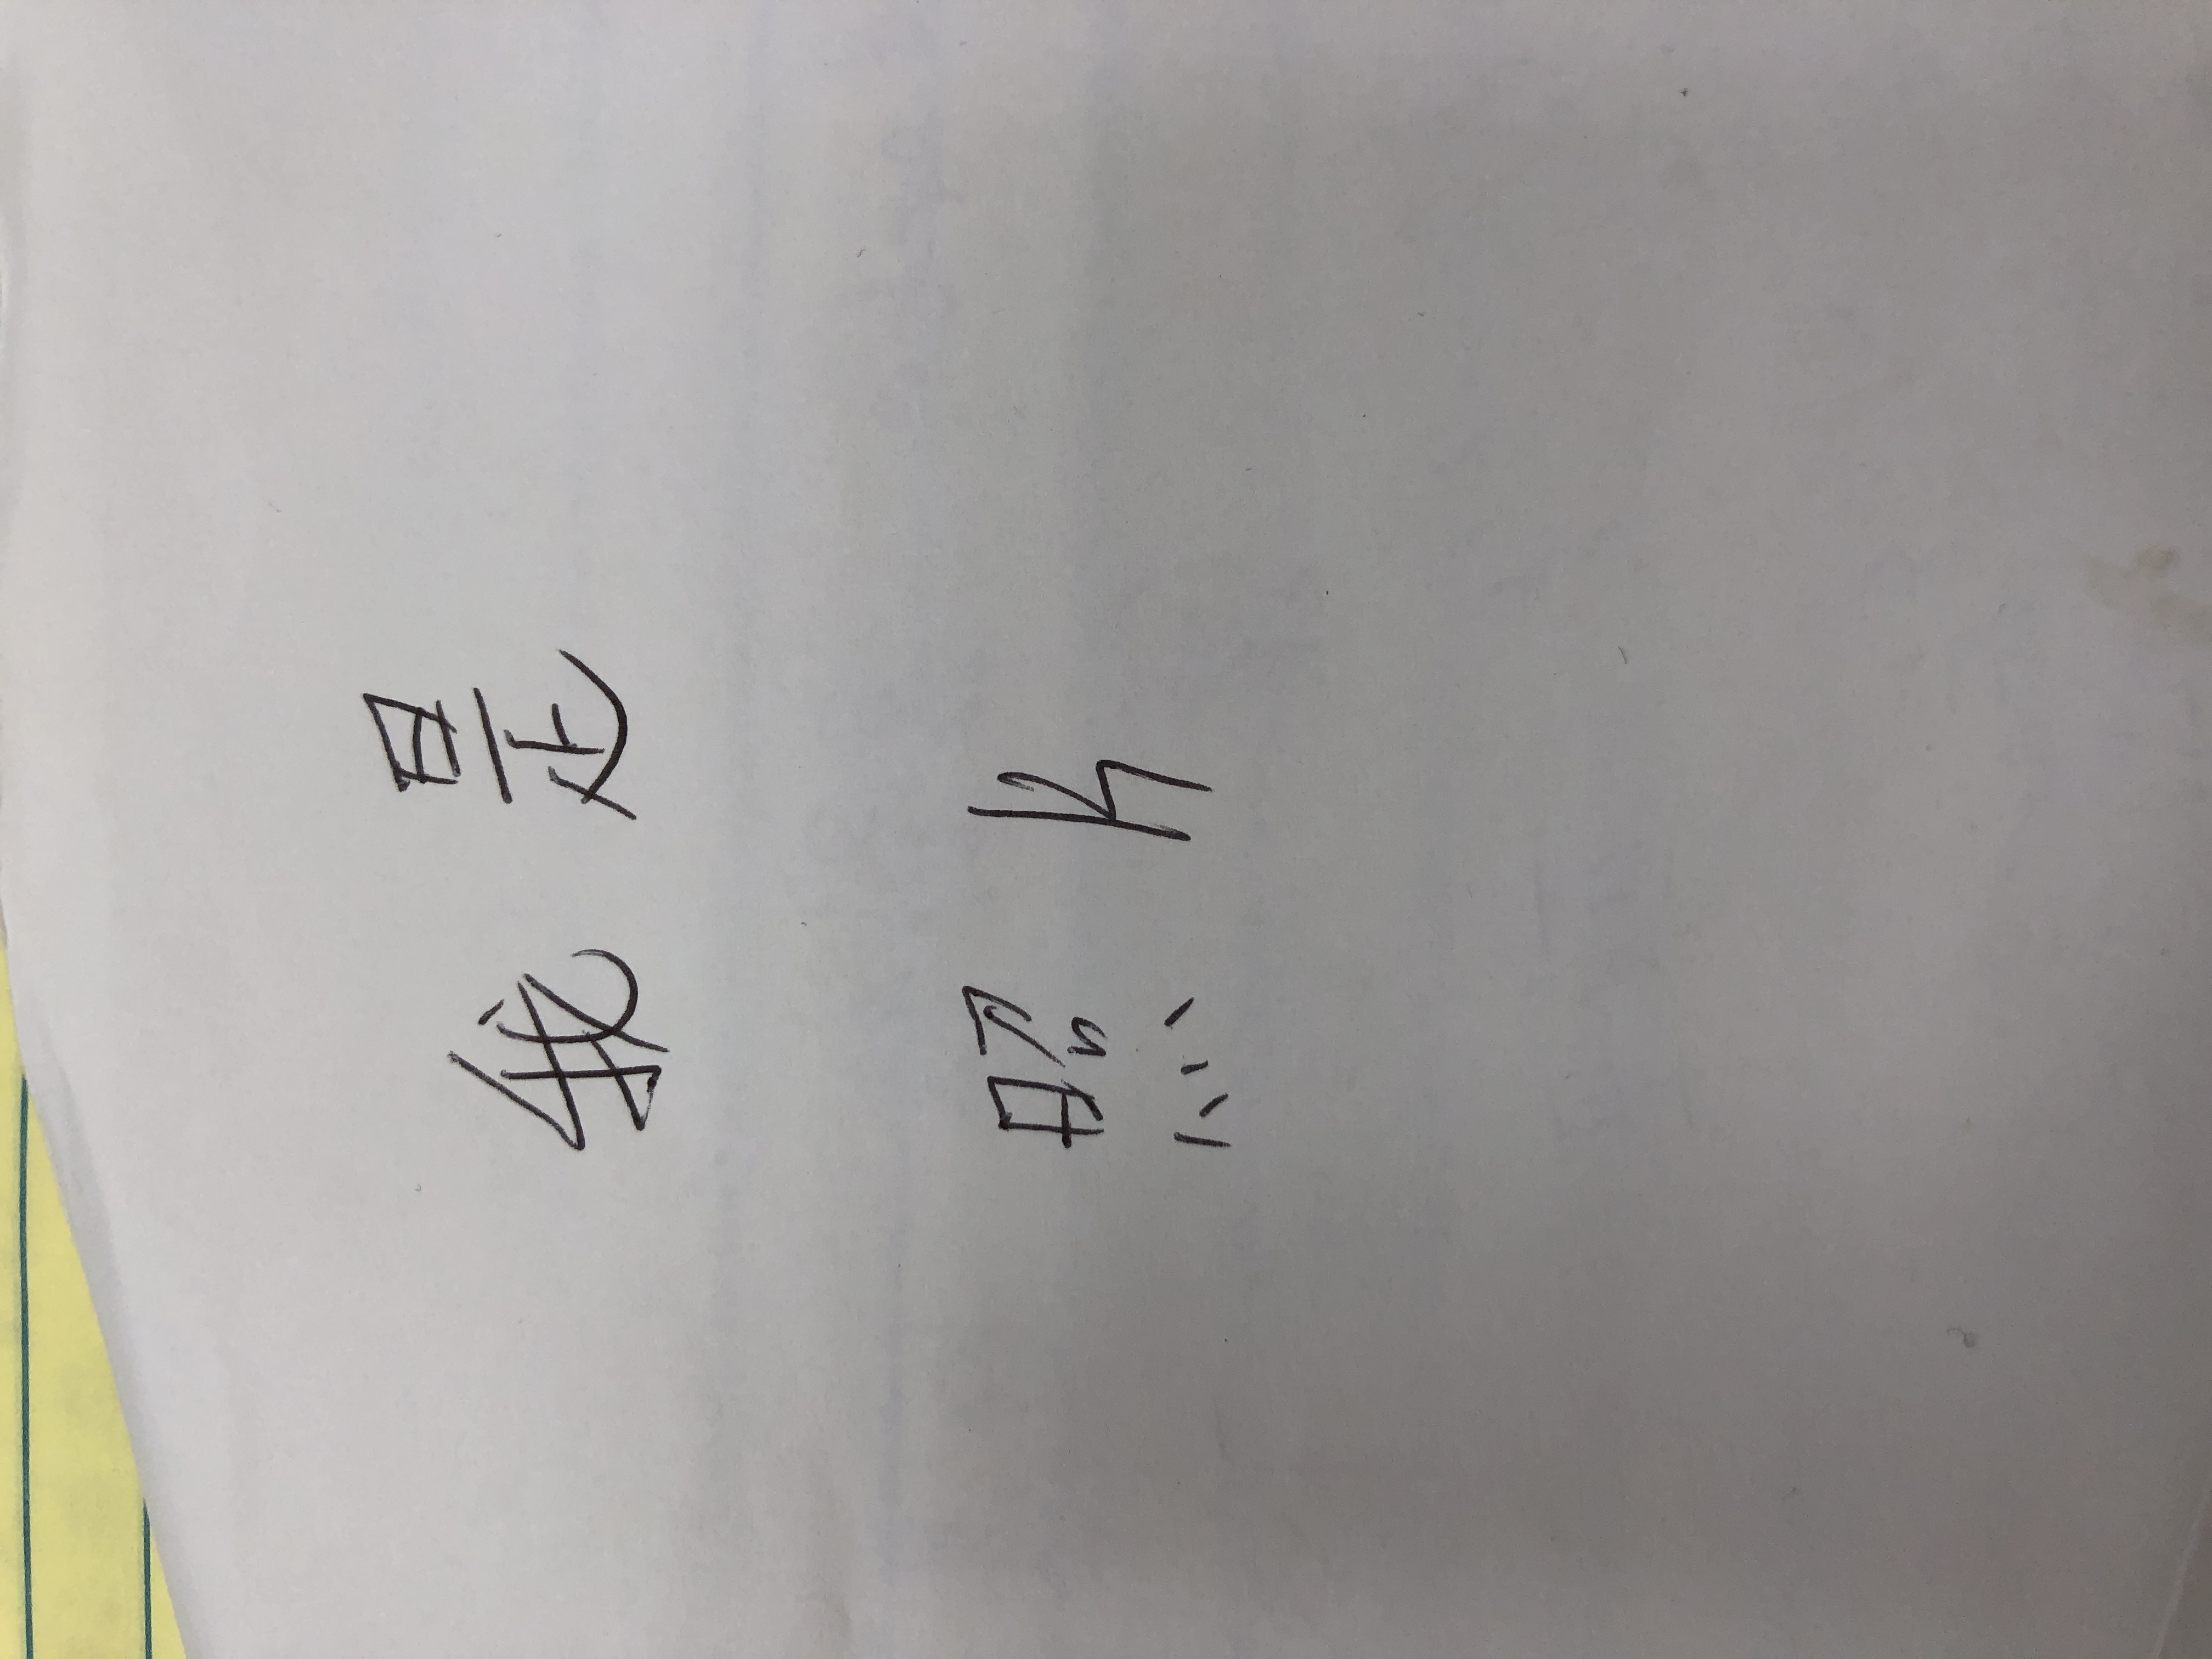 我是
照片